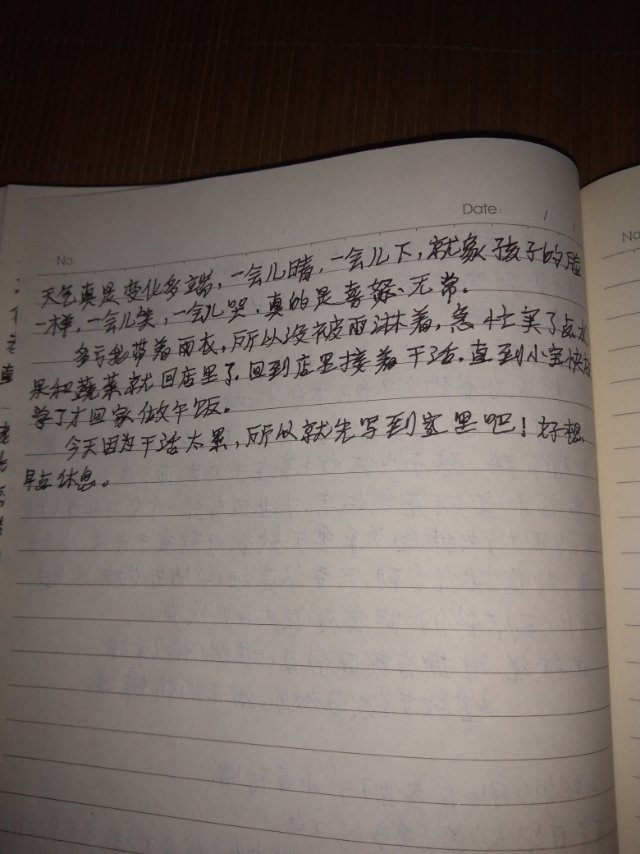 Date: / /
No.
No
天气真是变化多端,一会儿晴,一会儿下,就象孩子的脸
一样,一会儿笑,一会儿哭,真的是喜怒无常。
多亏我带着雨衣,所以没被雨淋着,急忙买了点水
果和蔬菜就回店里了。回到店里接着干活。直到小宝快放
学了才回家做午饭。
今天因为干活太累,所以就先写到这里吧!好想
早点休息。